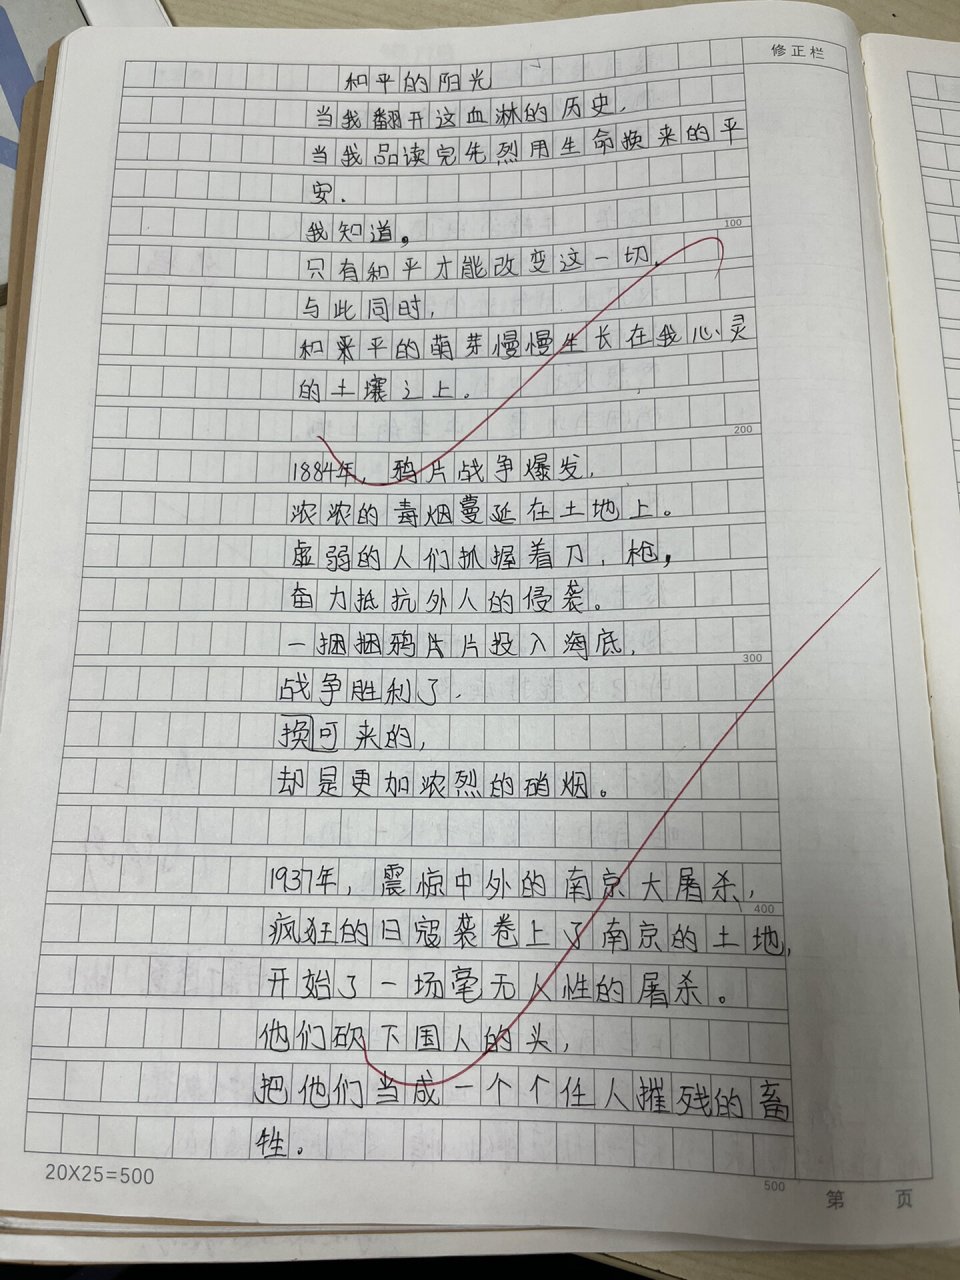 修正栏
和平的阳光
当我翻开这血淋的历史，
当我品读完先烈用生命换来的平
安．
我知道。
100
只有和平才能改变这一切，
与此同时，
和平的萌芽慢慢生长在我心灵
的土壤之上。
200
1884年，鸦片战争爆发，
浓浓的毒烟蔓延在土地上。
虚弱的人们抓握着刀，枪，
奋力抵抗外人的侵袭。
一捆捆鸦片投入海底，
300
战争胜利了．
换可来的，
却是更加浓烈的硝烟。
1937年，震惊中外的南京大屠杀，
400
疯狂的日寇袭卷上了南京的土地，
开始了一场毫无人性的屠杀。
他们砍下国人的头，
把他们当成一个个任人摧残的畜
牲。
20X25=500
500
第 页